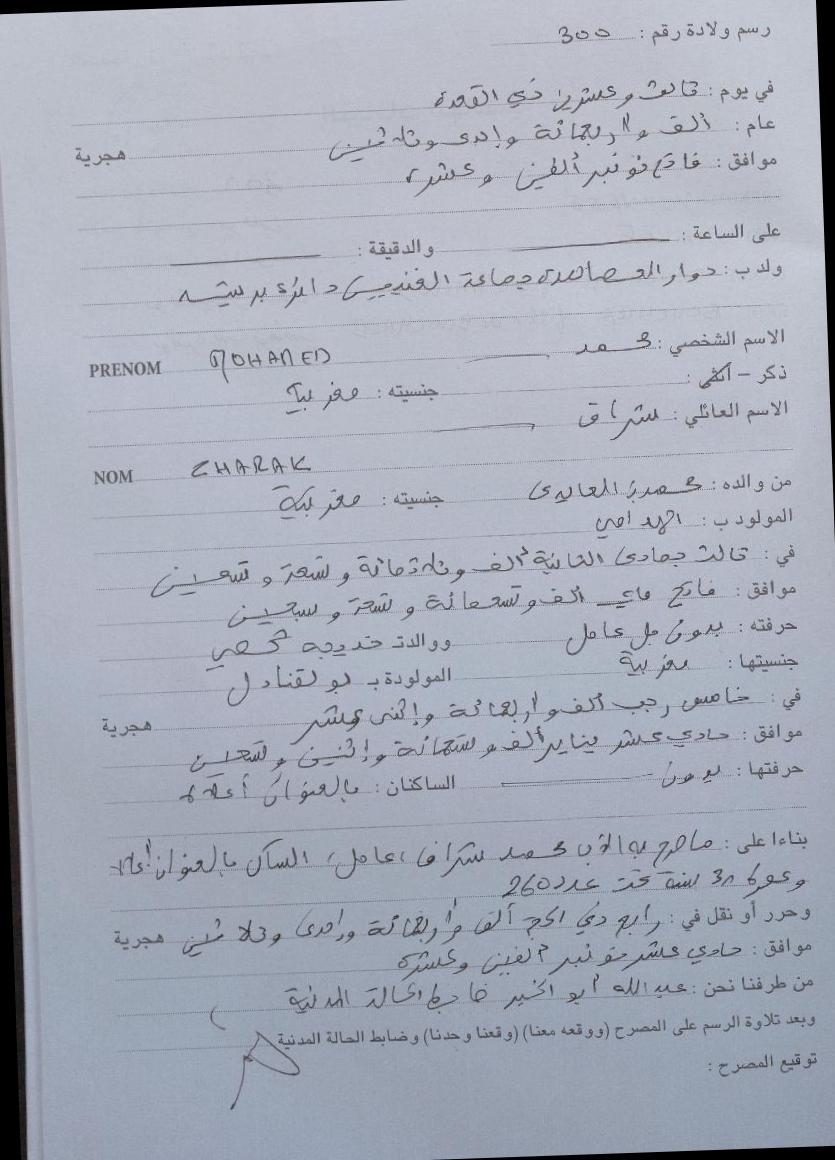 رسم ولادة رقم : 300
في يوم : ثالث وعشرين ذي القعدة
عام : ألف وأربعمائة وإحدى وثلاثين هجرية
موافق : فاتح نونبر ألفين وعشرة
على الساعة : والدقيقة :
ولد ب : دوار جماعة دائرة
الاسم الشخصي : محمد PRENOM MOHAMED
ذكر – أنثى : جنسيته : مغربية
الاسم العائلي : شراق
NOM CHARAK
من والده : محمد بن جنسيته : مغربية
المولود ب :
في : ثالث جمادى الثانية ألف وثلاثمائة وتسعة وتسعين
موافق : فاتح ماي ألف وتسعمائة وتسعة وسبعين
حرفته : بدون عامل ووالدته خديجة
جنسيتها : مغربية المولودة ب
في : خامس رجب ألف وأربعمائة وإثنى عشر هجرية
موافق : حادي عشر يناير ألف وتسعمائة وإثنين وتسعين
حرفتها : بدون الساكنان : بالعنوان أعلاه
بناءا على : ما صرح به الأب محمد شراق، عامل، الساكن بالعنوان أعلاه
وعمره 31 سنة تحت عدد 260
وحرر أو نقل في : رابع ذي الحجة ألف وأربعمائة وإحدى وثلاثين هجرية
موافق : حادي عشر نونبر ألفين وعشرة
من طرفنا نحن : عبد الله أبو الخير ضابط الحالة المدنية
وبعد تلاوة الرسم على المصرح (ووقعه معنا) (وقعنا وحدنا) وضابط الحالة المدنية
توقيع المصرح :